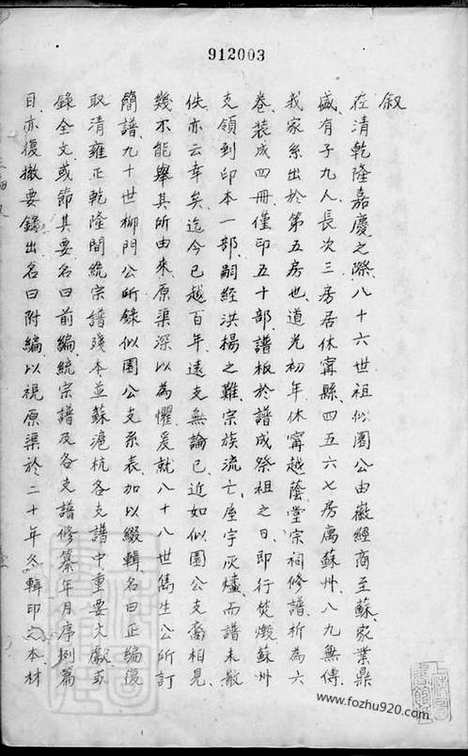 912003
叙
在清乾隆嘉慶之際八十六世祖似園公由徽經商至蘇家業鼎
盛有子九人長次三房居休寧縣四五六七房寓蘇州八九無傳
我家系出於第五房也道光初年休寧越蔭堂宗祠修譜析為六
卷裝成四冊僅印五十部譜板於譜成祭祖之日即行焚燬蘇州
支領到印本一部嗣經洪楊之難宗族流亡屋宇灰燼而譜未散
佚亦云幸矣迄今已越百年遠支無論已近如似園公支裔相見
幾不能舉其所由來原渠深以為懼爰就八十八世雋生公所訂
簡譜九十世柳門公所錄似園公支系表加以綴輯名曰正編復
取清雍正乾隆間統宗譜殘本並蘇滬杭各支譜中重要文獻或
錄全文或節其要名曰前編統宗譜及各支譜修纂年月序例篇
目亦復撤要錄出名曰附編以視原渠於二十年冬輯印之本材
www.fozhu920.com